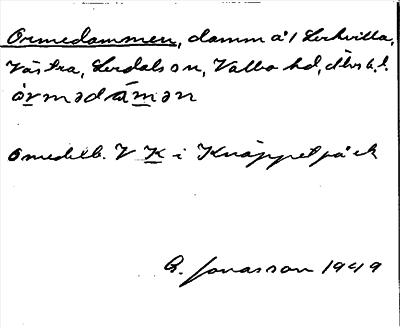 Ormedammen, damm å 1 Lerkvilla,
Västra, Lerdals sn, Valbo hd, Älvsb. l.
ὰrmədάmən
omedelb. V K i Knäppet på ek
G. Jonasson 1949